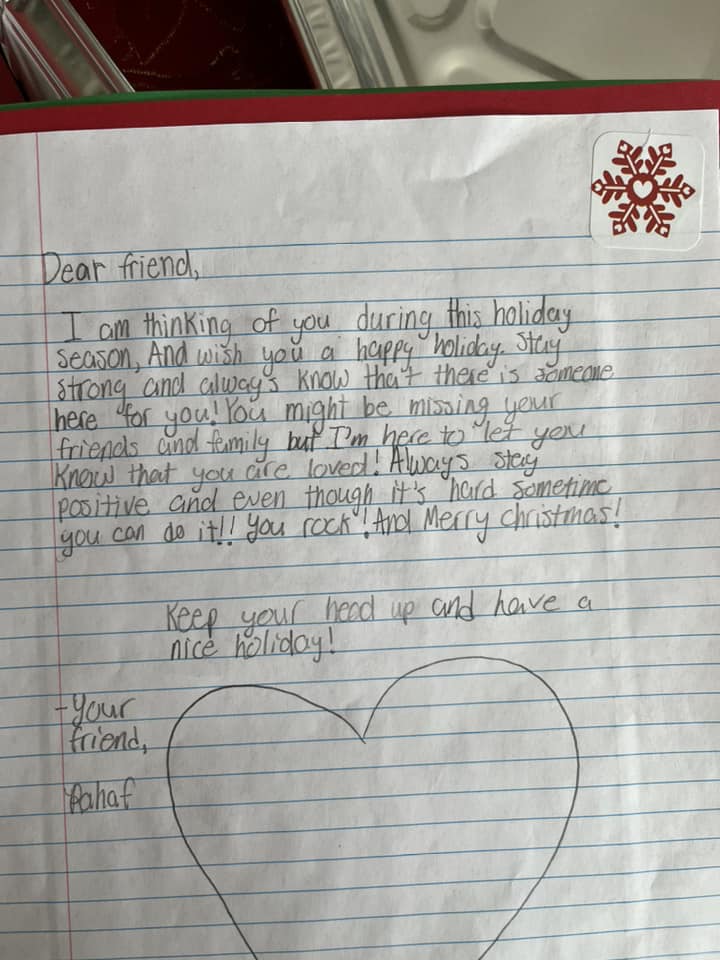 Dear friend,
I am thinking of you during this holiday
season, And wish you a happy holiday. Stay
strong and always know that there is someone
here for you! You might be missing your
friends and family but I'm here to let you
know that you are loved! Always stay
positive and even though it's hard sometime
you can do it!! You rock! And Merry christmas!
Keep your head up and have a
nice holiday!
-Your
friend,
Rahaf